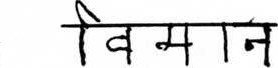 विमान